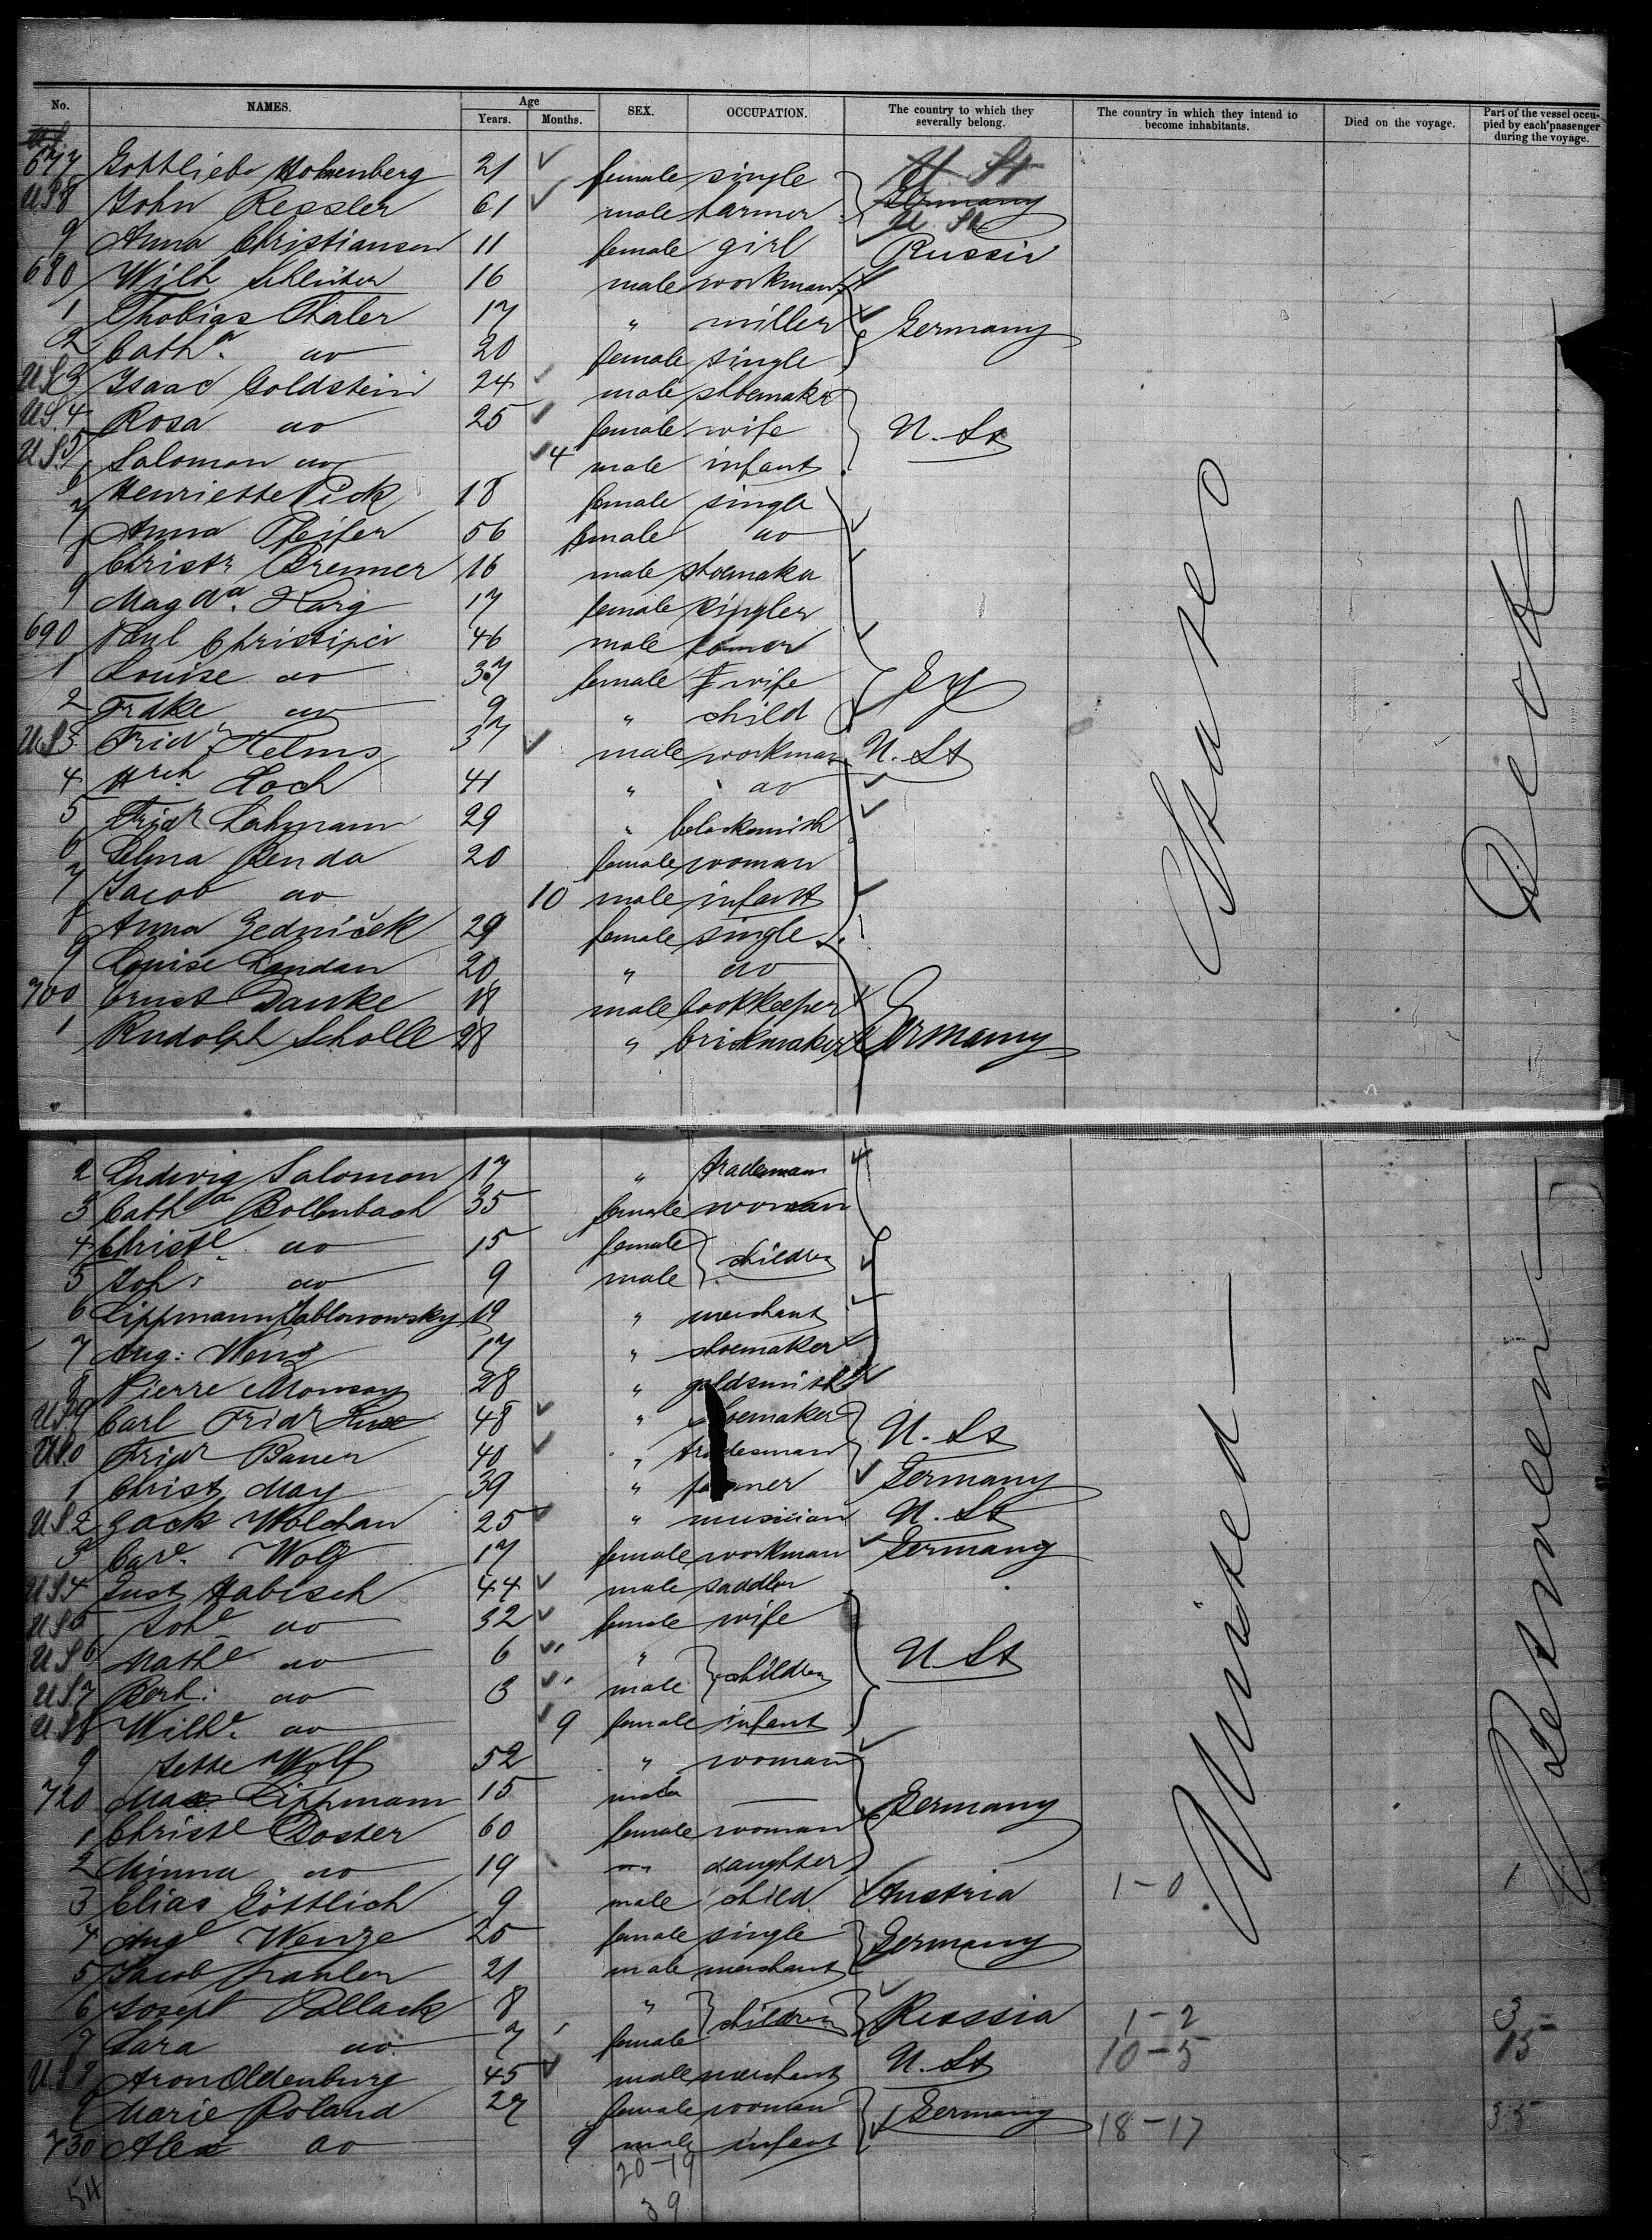 No. NAMES. Age Years. Months. SEX. OCCUPATION. The country to which they severally belong. The country in which they intend to become inhabitants. Died on the voyage. Part of the vessel occupied by each passenger during the voyage.
677 Gottliebe Hohenberg 21 female single U St Germany
US 8 John Kessler 61 male farmer U. St
9 Anna Christiansen 11 female girl Russia
680 Wilh Schleiter 16 male workman
1 Thobias Thaler 17 " miller Germany
2 Cath.a do 20 female single
US 3 Isaac Goldstein 24 male shoemaker
US 4 Rosa do 25 female wife U. St
US 5 Salomon do 4 male infant
6 Henriette Pick 18 female single
7 Anna Pfeifer 56 female do
8 Christn Brenner 16 male shoemaker
9 Magda. Karg 17 female single
690 Paul 46 male farmer
1 Louise do 37 female wife Gy
2 Frdke do 9 " child
US 3 Fried. Helms 37 male workman U. St
4 Hrch. Koch 41 " do
5 Friedr Lahmann 29 " blacksmith
6 Selma Benda 20 female woman
7 Jacob do 10 male infant
8 Anna Jedniček 29 female single
9 Louise Landau 20 " do
700 Ernst Danke 18 male bookkeeper
1 Rudolph Scholle 28 " brickmaker Germany
States
Deck
2 Ludwig Salomon 17 " tradesman
3 Catha Bollenbach 35 female woman
4 Christe. do 15 female children
5 Joh. do 9 male
6 Lippmann Jablonowsky 19 " merchant
7 Aug: Weng 17 " shoemaker
8 Pierre Monsay 28 " goldsmith
US 9 Carl Friedr 48 " shoemaker U. St
US 0 Friedr Bauer 40 " tradesman
1 Christ. May 39 " farmer Germany
US 2 Jack Wolchan 25 " musician U. St
3 Care. Wolf 17 female workman Germany
US 4 Gust Habisch 44 male saddler
US 5 Johe do 32 female wife
US 6 Mathe do 6 " children U St
US 7 Berh: do 3 male
US 8 Wilhe. do 9 female infant
9 Jette Wolf 52 " woman
720 Max Lippmann 15 male — Germany
1 Christe Doster 60 female woman
2 Minna do 19 " daughter
3 Elias Göttlich 9 male child Austria 1-0 1
4 Auge Wenze 25 female single Germany
5 Jacob 21 male merchant
6 Josef Pollack 8 " children Russia 1-2 3
7 Sara do 7 female
US 8 Aron Oldenburg 45 male merchant U. St 10-5 15
9 Marie Roland 27 female woman Germany 18-17 35
730 Alex do 9 male infant
54 20-19
39
United
Between